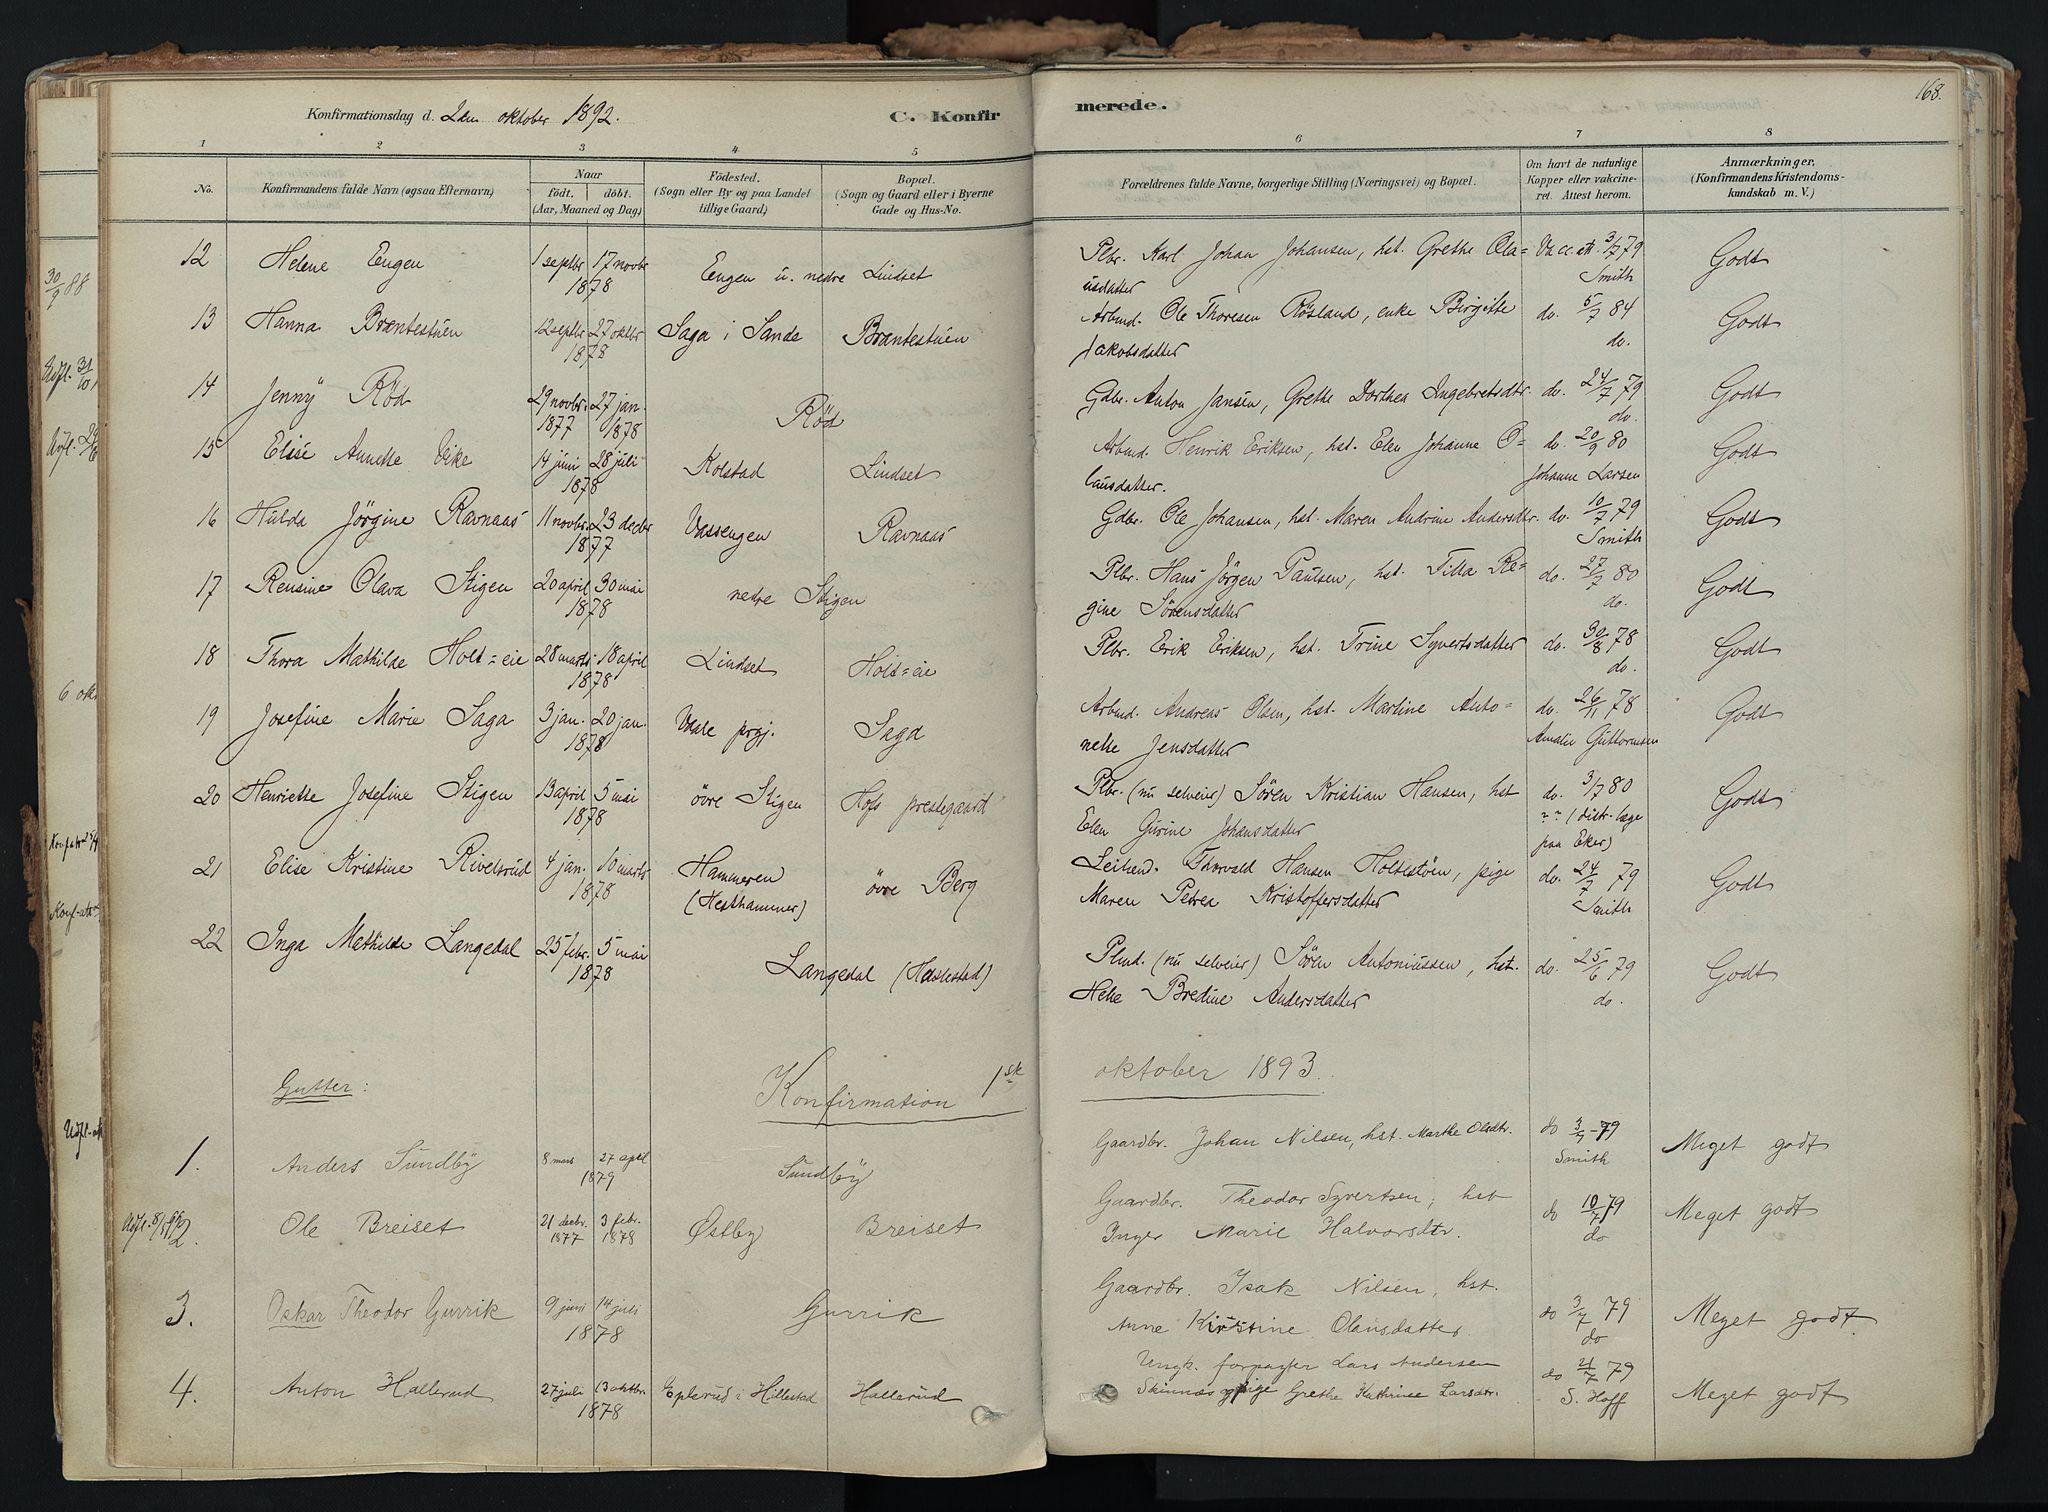 168.
Konfirmationsdag d. 2den oktober 1892. C. Konfirmerede.
1 2 3 4 5 6 7 8
No. Konfirmandens fulde Navn (ogsaa Efternavn) Naar født. døbt. (Aar, Maaned og Dag.) Födested. (Sogn eller By og paa Landet tillige Gaard) Bopæl. (Sogn og Gaard eller i Byerne Gade og Hus-No. Forældrenes fulde Navne, borgerlige Stilling (Næringsvei) og Bopæl. Om havt de naturlige Kopper eller vakcineret. Attest herom. Anmærkninger. (Konfirmandens Kristendomskundskab m. V.)
12 Helene Engen 1 septbr 17 novbr 1878 Engen u. nedre Lindset Plbr. Karl Johan Johansen, hst. Grethe Olausdatter Vacc. att. 3/7 79 Smith Godt
13 Hanna Bræntestuen 12 septbr 27 oktbr 1878 Saga i Sande Bræntestuen Arbmd. Ole Thoresen Røsland, enke Birgitte Jakobsdatter do. 5/7 84 do. Godt
14 Jenny Röd 29 novbr. 1877 27 jan. 1878 Röd Gdbr. Anton Jansen, Grethe Dorthea Ingebretsdtr. do. 24/7 79 do. Godt
15 Elise Annette Eike 14 juni 28 juli 1878 Kolstad Lindset Arbmd. Henrik Eriksen, hst. Elen Johanne Olausdatter. do. 20/9 80 Johanne Larsen Godt
16 Hulda Jörgine Ravnaas 11 novbr. 23 decbr 1877 Vassengen Ravnaas Gdbr. Ole Johansen, hst. Maren Andrine Andersdtr. do. 10/7 79 Smith Godt
17 Rensine Olava Stigen 20 april 30 mai 1878 nedre Stigen Plbr. Hans Jörgen Paulsen, hst. Tilla Regine Sörensdatter do. 27/7 80 do. Godt
18 Thora Mathilde Holt=eie 28 marts 18 april 1878 Lindset Holt=eie Plbr. Erik Eriksen, hst. Trine Syvertsdatter do. 30/8 78 do. Godt
19 Josefine Marie Saga 3 jan. 20 jan. 1878 Vaale prgj. Saga Arbmd. Andreas Olsen, hst. Martine Antonette Jensdatter do. 26/11 78 Amalie Guttormsen Godt
20 Henriette Josefine Stigen 13 april 5 mai 1878 øvre Stigen Hofs prestegaard Plbr. (nu selveier) Sören Kristian Hansen, hst Elen Gurine Johansdatter do. 3/7 80 " " (distr. læge paa Eker) Godt
21 Elise Kristine Rivelsrud 4 jan. 10 marts 1878 Hammeren (Hesthammer) övre Berg Leilend. Thorvald Hansen Holtestöen, pige Maren Petrea Kristoffersdatter do. 24/7 79 Smith Godt
22 Inga Mathilde Langedal 25 febr. 5 mai 1878 Langedal (Haslestad) Plmd. (nu selveier) Sören Antoniussen, hst. Helle Bredine Andersdatter do. 25/6 79 do. Godt
Gutter: Konfirmation 1ste oktober 1893.
1. Anders Sundby 8 mars 27 april 1879 Sundby Gaardbr. Johan Nilsen, hst. Marthe Olsdtr. do 3/7 - 79 Smith Meget godt
2. Ole Breiset 21 decbr. 1877 3 febr. 1878 Østby Breiset Gaardbr. Theodor Syvertsen, hst Inger Marie Halvorsdtr. do 10/7 79 do Meget godt
3. Oskar Theodor Gurrik 9 juni 14 juli 1878 Gurrik Gaardbr. Isak Nilsen, hst. Anne Kirstine Olausdatter. do 3/7 79 do Meget godt.
4. Anton Hallerud 27 juli 13 oktbr 1878 Eplerud i Hillestad Hallerud Ungk. forpagter Lars Andersen Skinnæs pige Grethe Kathrine Larsdtr. do 21/7 79 S. Hoff Meget godt
30/9 88
Udfl. 31/10
6 okt